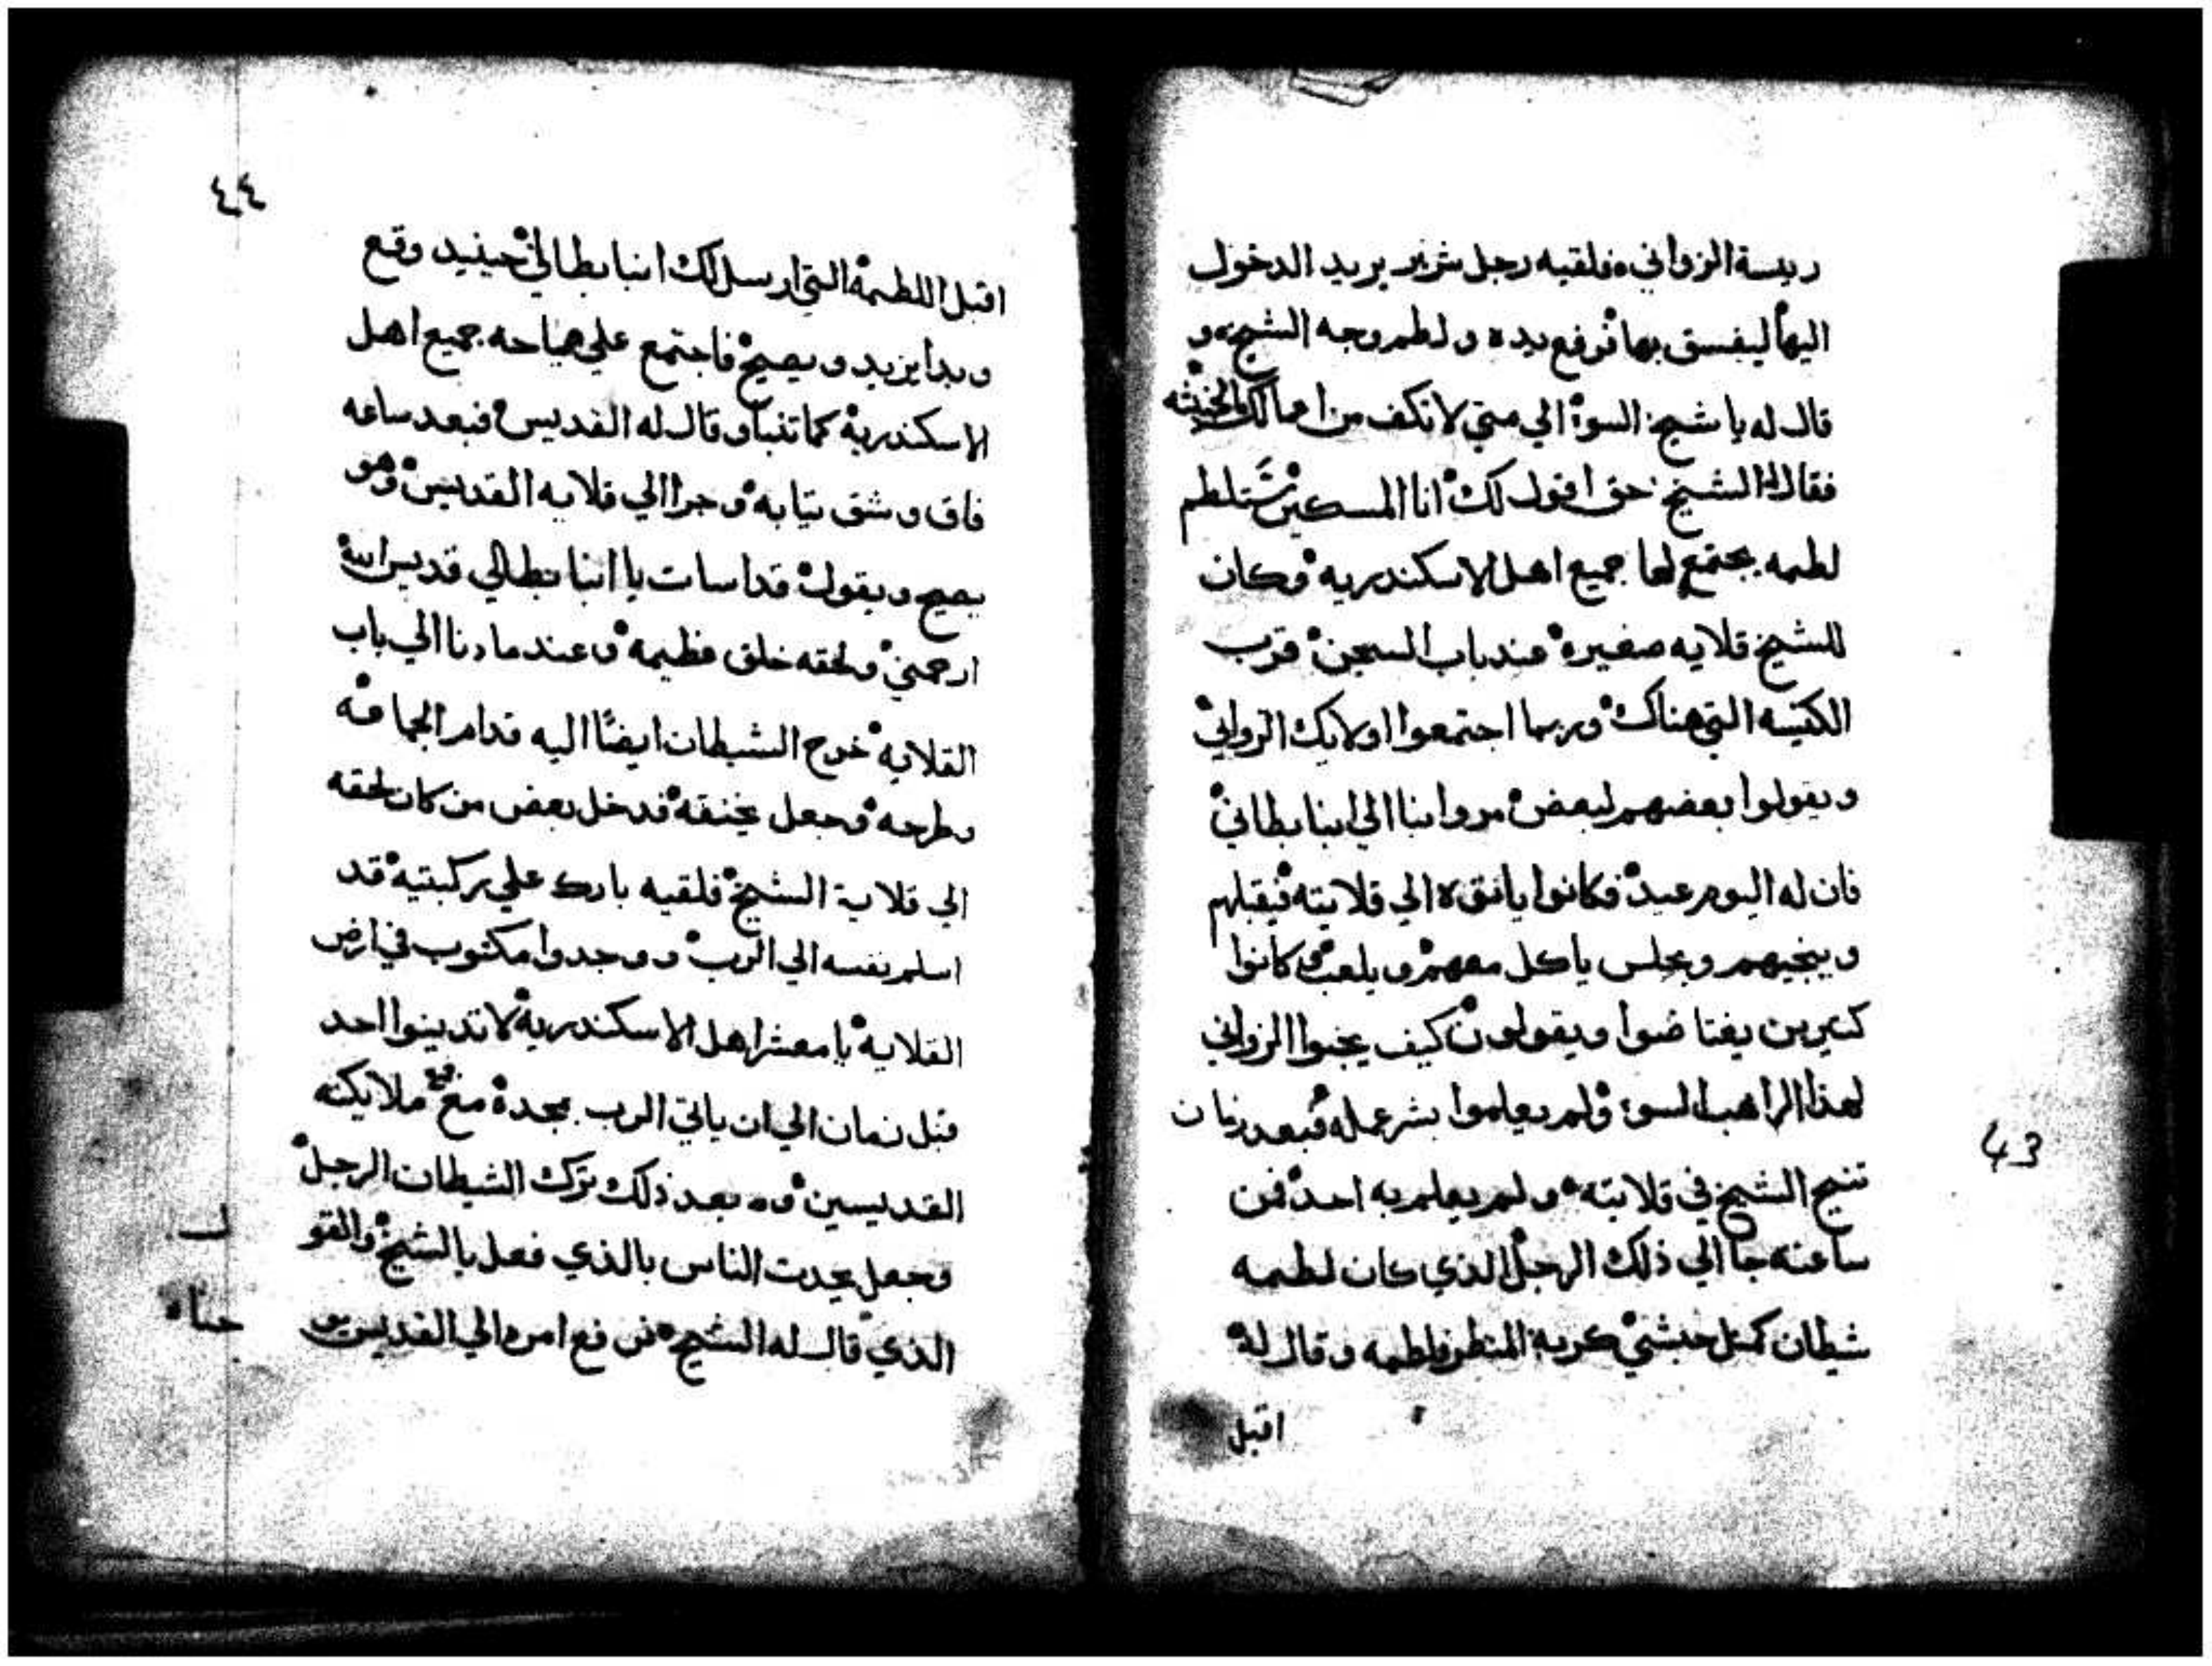 ريسة الزواني فلقيه رجل شرير يريد الدخول
اليها ليفسق بها فرفع يده ولطم وجه الشيخ و
قال له يا شيخ السوة الي متي لا تكف من اعمالك الخبثه
فقال له الشيخ حق اقول لك انا المسكين ستلطم
لطمه يجتمع لها جميع اهل الاسكندريه وكان
للشيخ قلايه صغيره عند باب السجن قرب
الكنيسه التي هناك وربما اجتمعوا اولايك الزواني
ويقولوا بعضهم لبعض مروا بنا الي انبا بطاني
فان له اليوم عيد فكانوا ياتوه الي قلايته فيقبلهم
وينجيهم ويجلس ياكل معهم ويلعب وكانوا
كتيرين يغتاضوا ويقولون كيف يحبوا الزواني
لهذا الراهب السوء ولم يعلموا بشر عمله فبعد زمان
تنيح الشيخ في قلايته ولم يعلم به احد فمن
ساعته جا الي ذلك الرجل الذي كان لطمه
شيطان كمتل حبشي كريه المنظر فلطمه وقال له
اقبل
43
٤٤
اقبل اللطمة التي ارسل لك انبا بطالي حينيد وقع
وبدا يزبد ويصيح فاجتمع علي صياحه جميع اهل
الاسكندرية كما تنبا وقال له القديس فبعد ساعه
فاق وشق تيابه وجرا الي قلايه القديس وهو
يصيح ويقول قد اسات يا انبا بطالي قديس الله
ارحمني ولحقه خلق عظيمه وعندما دنا الي باب
القلايه خرج الشيطان ايضًا اليه قدام الجماعه
وطرحه وجعل يخنقه فدخل بعض من كان لحقه
الي قلاية الشيخ فلقيه بارك علي ركبتيه قد
اسلم نفسه الي الرب ووجدوا مكتوب في ارض
القلايه يا معشر اهل الاسكندرية لا تدينوا احد
قبل زمان الي ان ياتي الرب بمجدة مع ملايكته
القديسين وبعد ذلك ترك الشيطان الرجل
وجعل يحدت الناس بالذي فعل بالشيخ والقو
الذي قال له الشيخ فرفع امره الي القديس
ل